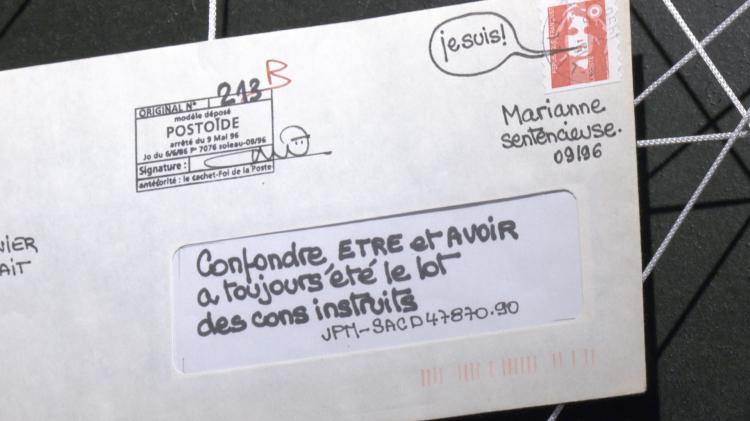 jesuis!
Marianne
sentencieuse.
09/96
213 B
ORIGINAL N°
modèle déposé
POSTOÏDE
arrêté du 9 Mai 96
Jo du 6/6/86 P° 7076 soleau-09/96
Signature :
antéforité : le cachet-Foi de la Poste
NIER
AIT
Confondre ETRE et AVOIR
a toujours été le lot
des cons instruits
JPM-SACD47870.90